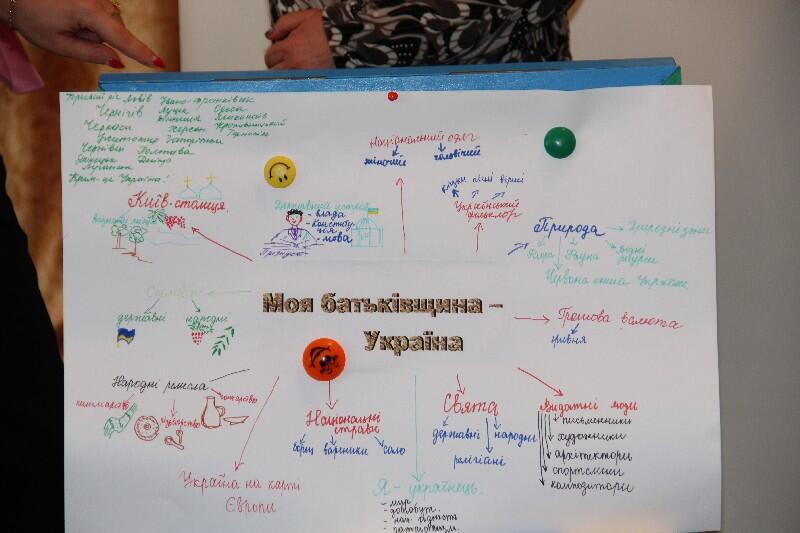 Кривий ріг Львів Івано-Франківськ
Чернігів Луцьк Одеса
Вінниця Миколаїв
Черкаси Херсон Кропивницький
Житомир Запоріжжя Тернопіль
Чернівці Полтава
Донецьк Дніпро
Луганськ
Крим-це Україна!
Київ-столиця
Державний устрій
- влада
- конститу
ція
- мова
Президент
Національний одяг
жіночий чоловічий
казки пісні вірші
Український
фольклор
Природа
Природні зони
Флора Фауна водні
ресурси
Червона книга України.
Символи
державні народні
Моя батьківщина –
Україна
Грошова валюта
гривня
Народні ремесла
гончарство
Національні
страви
борщ вареники сало
Свята
державні народні
релігійні
Видатні люди
письменники
художники
архітектори
спортсмени
композитори
Україна на карті
Європи
Я - українець.
- мир
- добробут
- нац. гідність
- патріотизм.